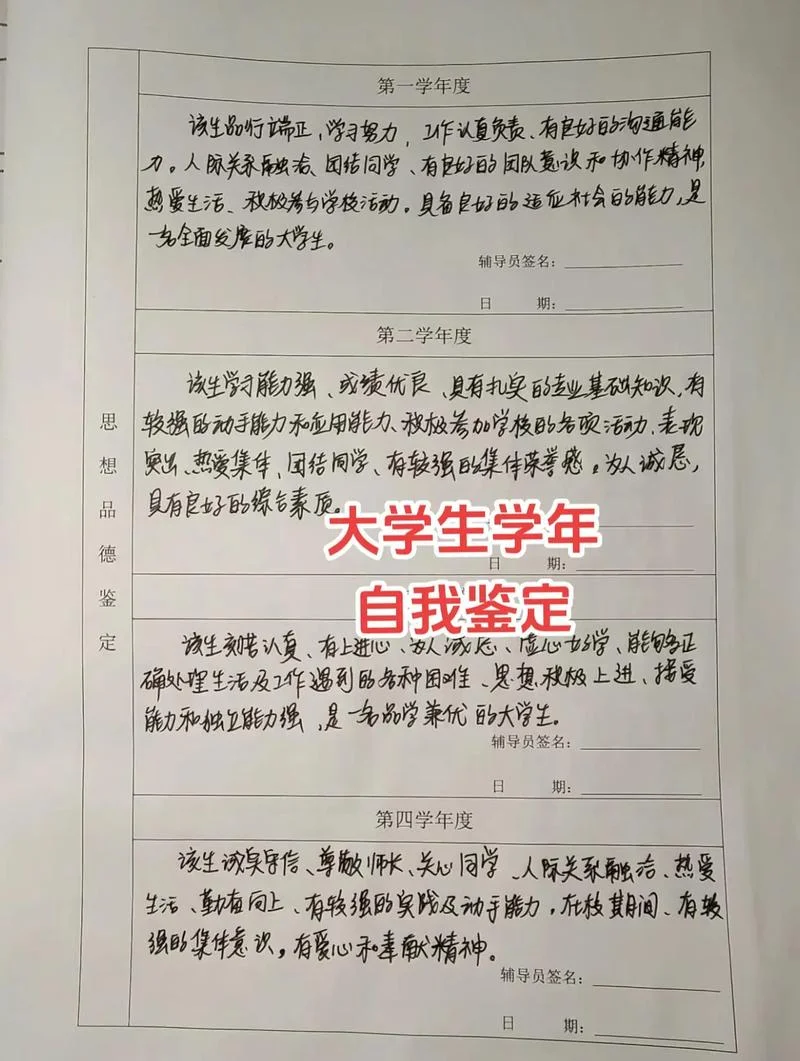 第一学年度
该生品行端正,学习努力,工作认真负责、有良好的沟通能
力。人际关系融洽、团结同学、有良好的团队意识和协作精神,
热爱生活、积极参与学校活动。具备良好的适应社会的能力,是
一名全面发展的大学生。
辅导员签名:
日 期:
第二学年度
该生学习能力强、成绩优良、具有扎实的专业基础知识,有
较强的动手能力和应用能力、积极参加学校的各项活动、表现
突出、热爱集体、团结同学、有较强的集体荣誉感。为人诚恳,
具有良好的综合素质。
日 期:
大学生学年
自我鉴定
该生刻苦认真、有上进心、为人诚恳、虚心好学、能够正
确处理生活及工作遇到的各种困难、思想积极上进、接受
能力和独立能力强,是一名品学兼优的大学生。
辅导员签名:
日 期:
第四学年度
该生诚实守信、尊敬师长、关心同学、人际关系融洽、热爱
生活、勤奋向上、有较强的实践及动手能力。在校期间、有较
强的集体意识。有爱心和奉献精神。
辅导员签名:
日 期:
思想品德鉴定